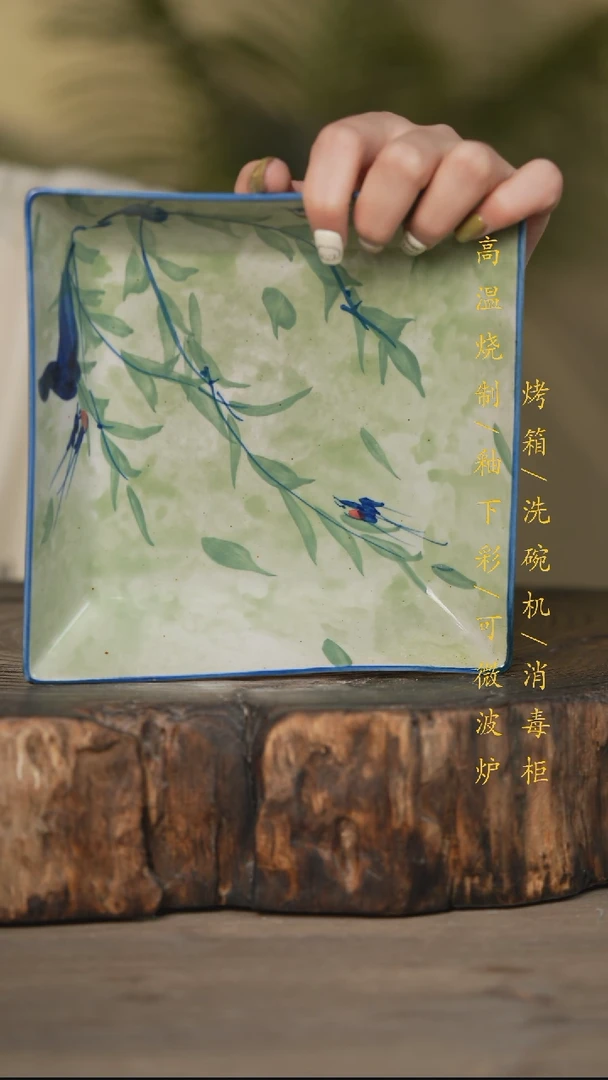 烤箱/洗碗机/消毒柜
高温烧制/釉下彩/可微波炉